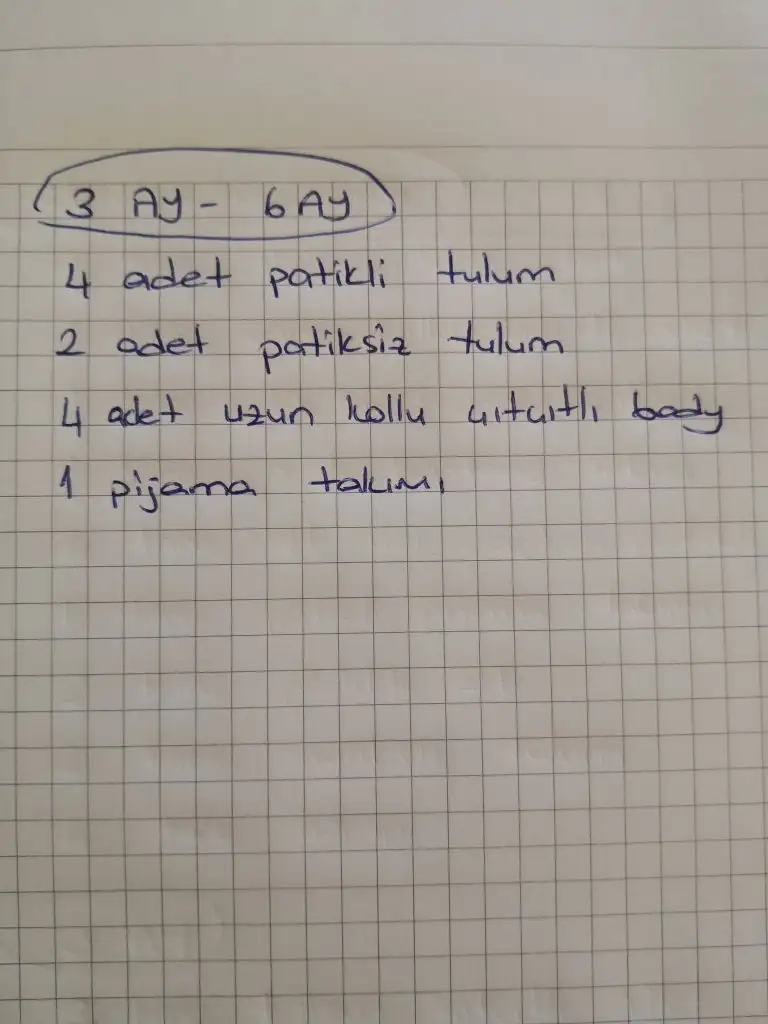 3 AY - 6 AY
4 adet patikli tulum
2 adet patiksiz tulum
4 adet uzun kollu çıtçıtlı body
1 pijama takımı